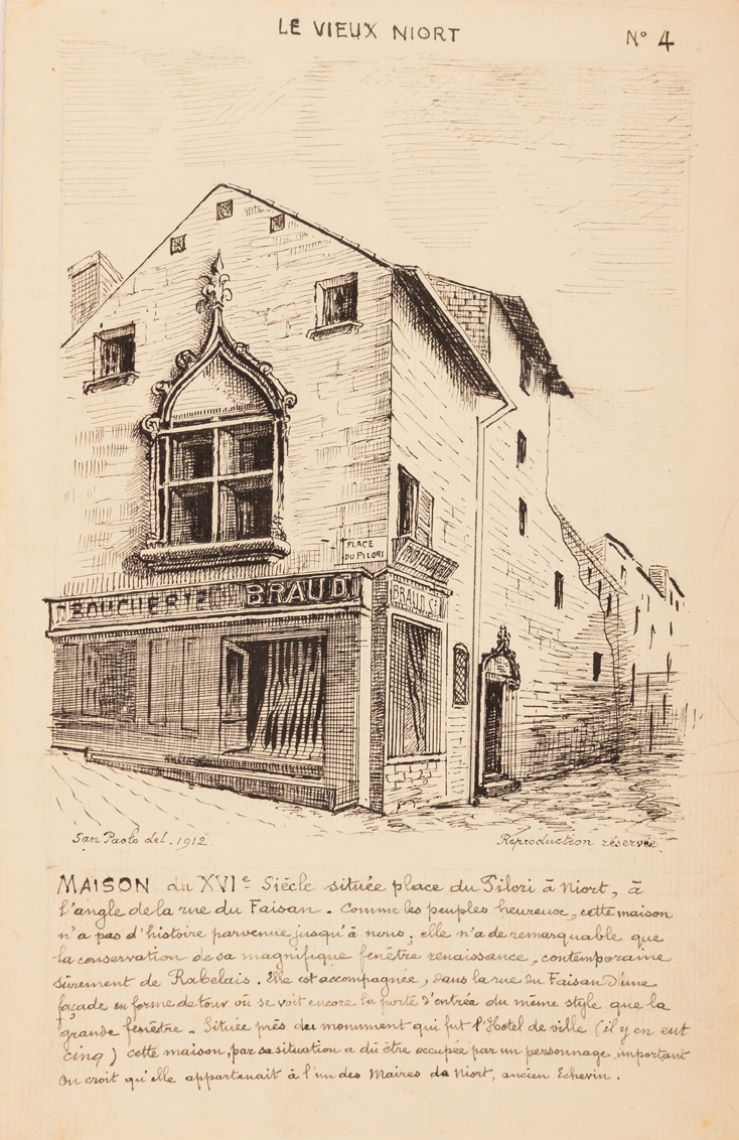 LE VIEUX NIORT
N° 4
PLACE
DU PILORI
BOUCHERIE BRAUD
BRAUD S.
San Paolo del. 1912
Reproduction réservée
MAISON du XVIe Siècle située place du Pilori à Niort, à
l'angle de la rue du Faisan. Comme les peuples heureux, cette maison
n'a pas d'histoire parvenue jusqu'à nous, elle n'a de remarquable que
la conservation de sa magnifique fenêtre renaissance, contemporaine
sûrement de Rabelais. Elle est accompagnée, dans la rue du Faisan d'une
façade en forme de tour où se voit encore la porte d'entrée du même style que la
grande fenêtre. Située près du monument qui fut l'Hotel de ville (il y en eut
cinq) cette maison, par sa situation a dû être occupée par un personnage important
On croit qu'elle appartenait à l'un des Maires de Niort, ancien Echevin.